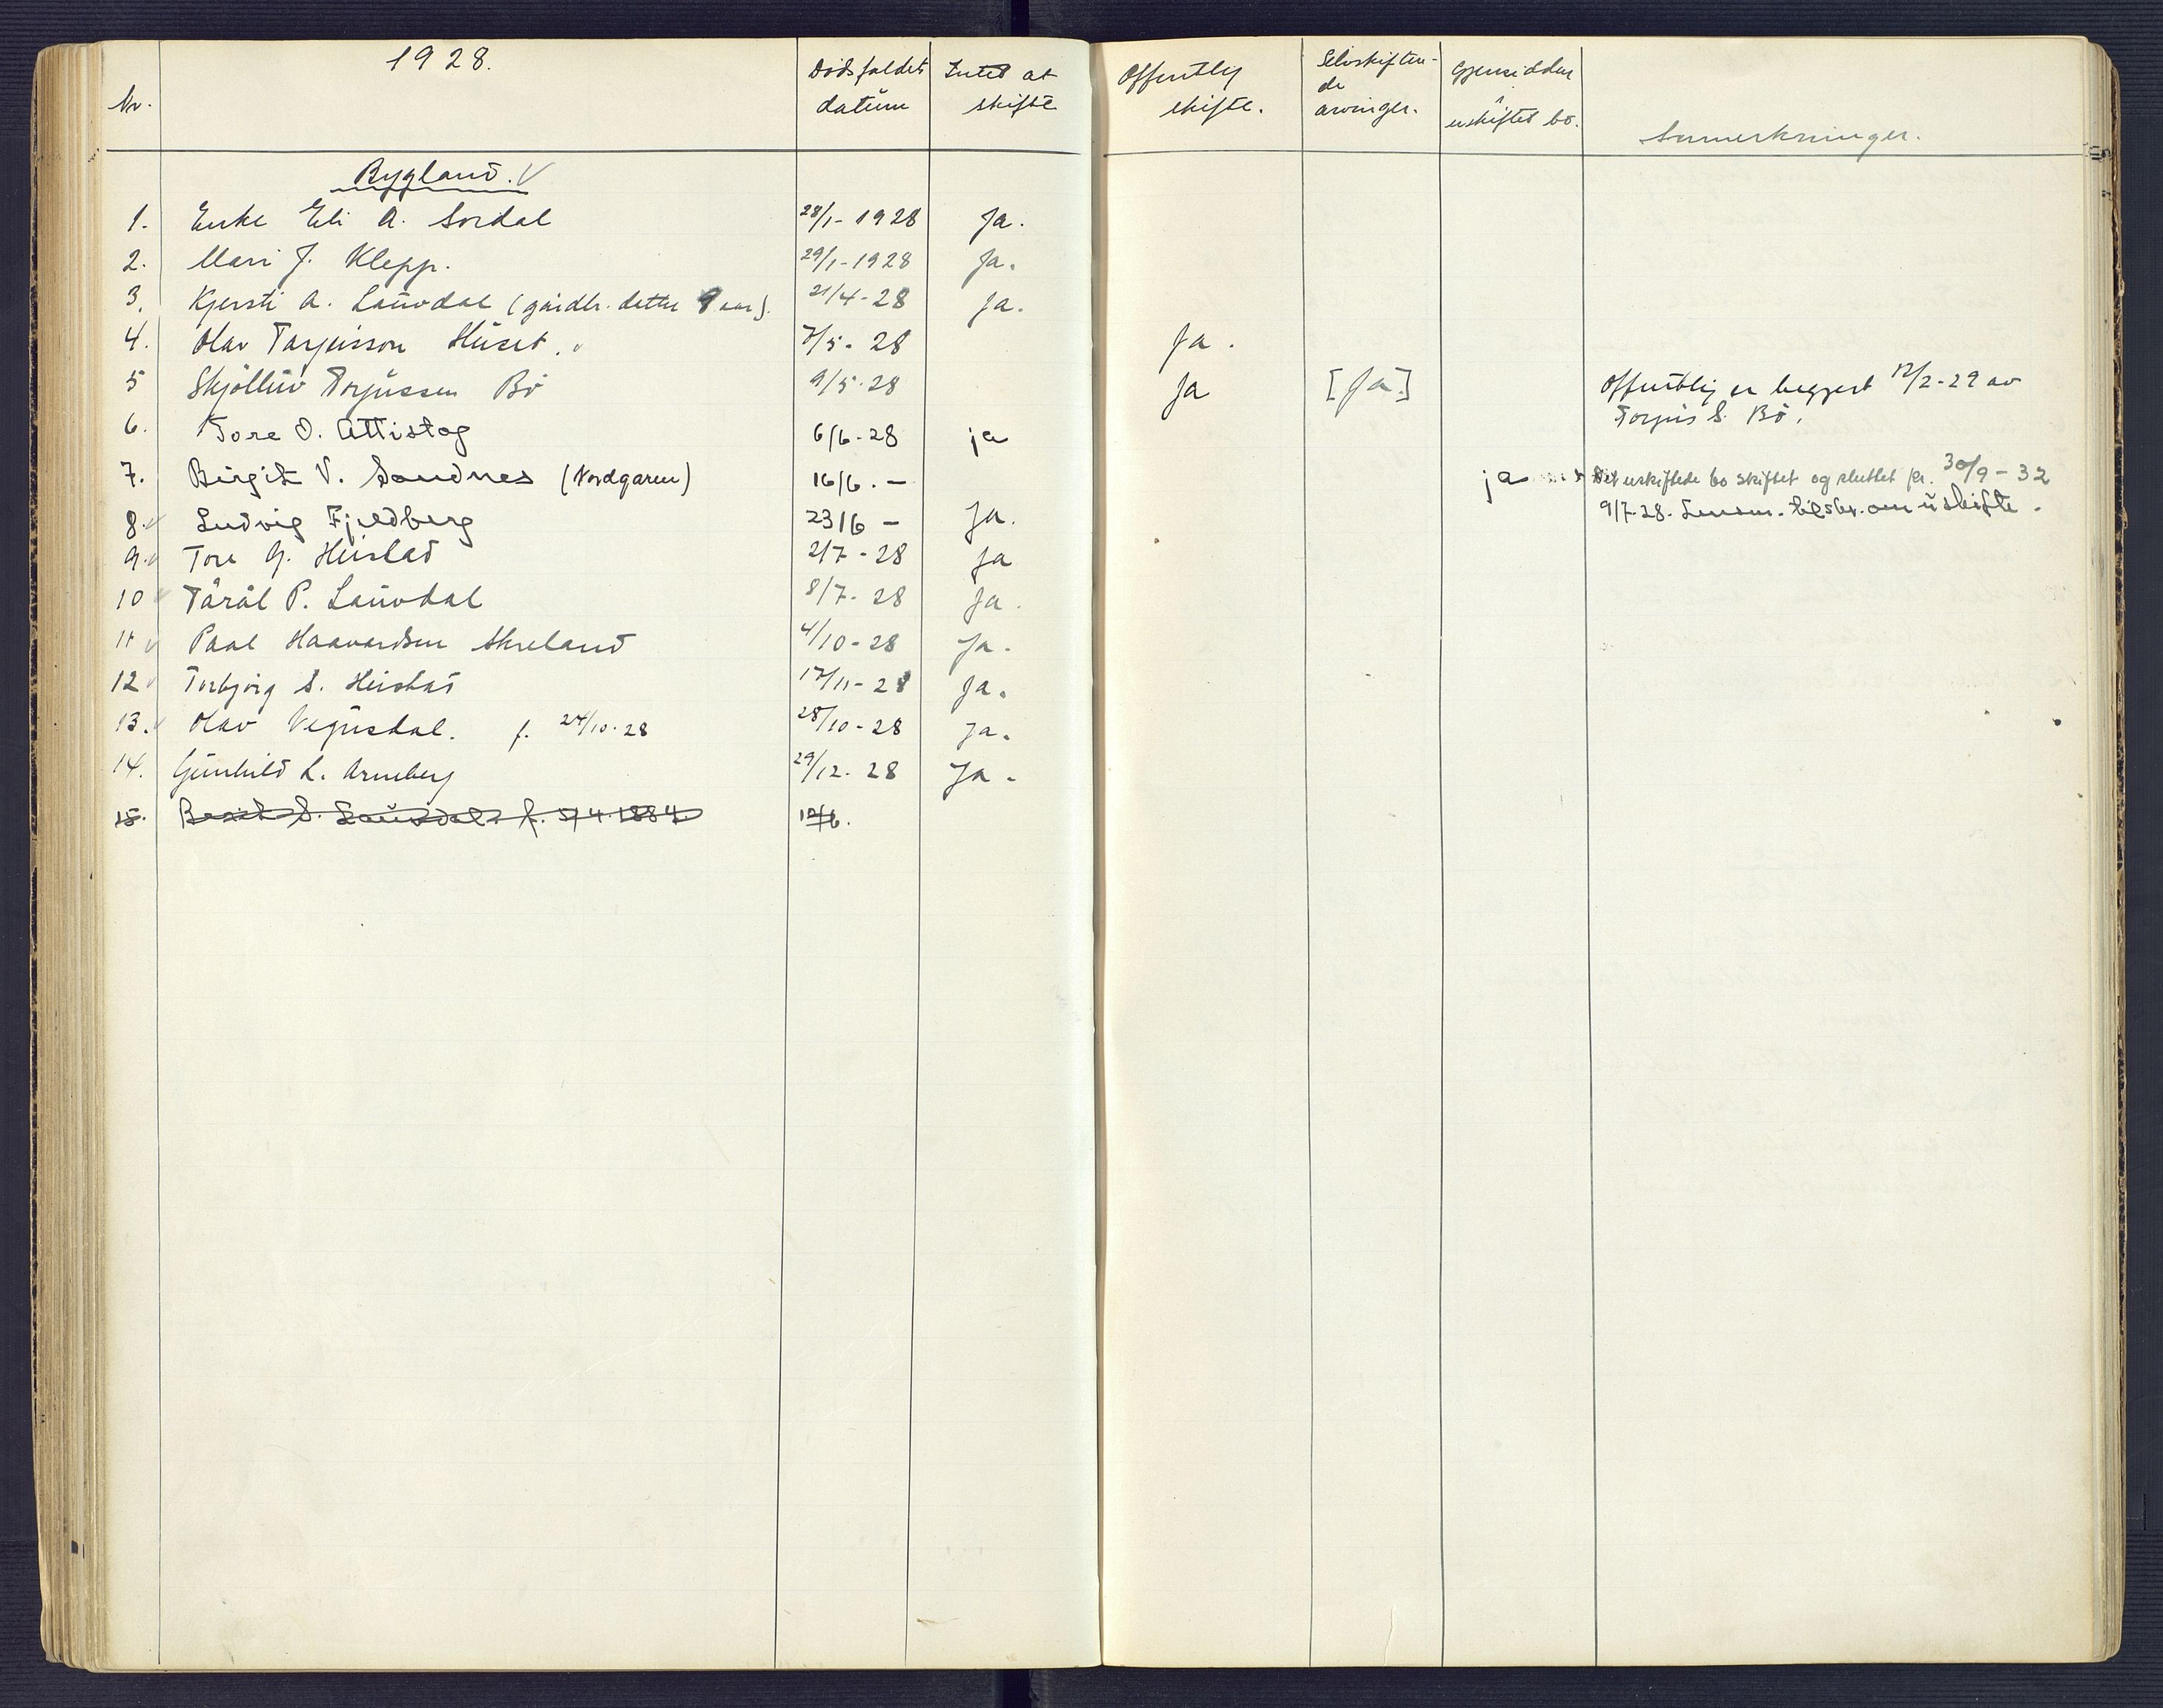 1928.
Nr. Dödsfaldets datum Intet at skifte Offentlig skifte. Selvskiftende arvinger. Gjensidden i uskiftet bo. Anmerkninger.
Bygland. √
1. Enke Eli A. Sordal 28/1- 1928 Ja.
2. Mari J. Klepp. 29/1-1928 Ja.
3. Kjersti A. Lauvdal (gårdbr. datter 9 aar). 21/4-28 Ja.
4. Olav Tarjeisson Huset. 7/5- 28 Ja.
5 Skjölluv Torjussen Bö 9/5-28 Ja [Ja] Offentlig er begjært 12/2-29 av
Torjus S. Bö.
6. Tore O. Attistog 6/6-28 ja
7. Birgit V. Sandnes (Nordgaren) 16/6. — ja Det uskiftede bo skiftet og sluttet pr. 30/9-32
9/7-28. Lensm. om uskifte.
8. Ludvig Fjeldberg 23/6 — Ja.
9. Tore G. Heistad 2/7-28 Ja
10 Tårål P. Lauvdal 8/7-28 Ja.
11 Paal Haavardsen Skreland 4/10-28 Ja.
12 Torbjörg S. Heistad 17/11-28 Ja.
13. Olav Vegusdal. f. 24/10-28 28/10-28 Ja.
14. Gunhild L. Arneberg 29/12-28 Ja.
15. Berit S. Lauvdal f. 5/4.1884 12/6.